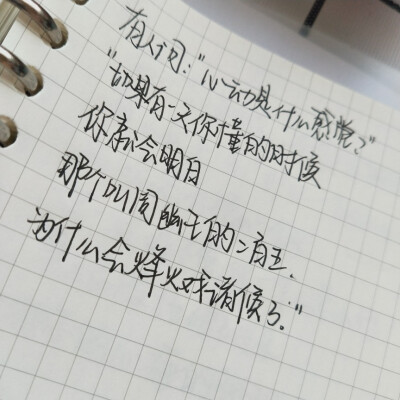 有人问："心动是什么感觉？"
"如果有一天你懂的时候
你就会明白
那个叫周幽王的
为什么会烽火戏诸侯了."